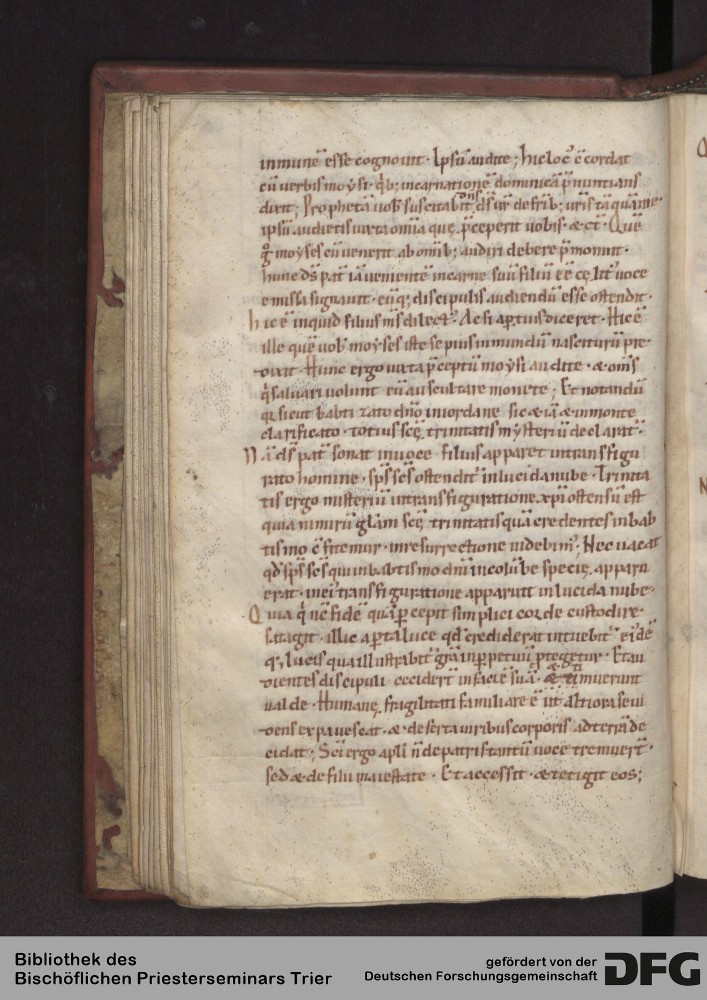 inmunē esse cognouit. Ipsū audite; hic loc᷒ c̄cordat
cū uerbis moysi. qͥb; incarnationē dominicā p̄nuntians
dixit; Prophetā uob᷒ suscitabit dn̄s d̄s ur̄ de frīb; ur̄is tāquā me.
ipsū audietis iuxta omīa quę p̄ceperit uobis. & ct̄. Quē
g̊ moyses cū uenerit ab omīb; audiri debere p̄monuit.
hunc d̄s pat̄ iā uenientē in carne suū filiū eē cęlit᷒ uoce
emissa signauit. eūq; discipulis audiendū esse ostendit.
hic ē inquid filius m̄s dilect᷒. Ac si aptius diceret. Hic ē
ille quē uob᷒ moyses iste sepius in mundū nasciturū pre-
dixit. Hunc ergo iuxta p̄ceptū moysi audite. & om̄s
qͥ saluari uolunt eū auscultare monete; Et notandū
qͣ sicut babtizato dn̄o in iordane sic & iā & in monte
clarificato. totius scę̄ trinitatis mysteriū declarat᷒.
Nā d̄s pat̄ sonat in uoce filius apparet in transfigu
rato homine. sp̄s sc̄s ostendit᷒ in lucida nube. Trinita
tis ergo misteriū in transfiguratione xp̄i ostensū est
quia nimirū gl̄am scę̄ trinitatis quā credentes in bab
tismo c̄fitemur. in resurrectione uidebim᷒; Nec uacat
qd̄ sp̄s sc̄s qui in babtismo dn̄i in columbe specię apparu
erat. in ei᷒ transfiguratione apparuit in lucida nube.
Quia qͥ nc̄ fidē quā p̄cepit simplici corde custodire.
satagit. illic apta luce qd̄ crediderat intuebit᷒ ei᷒dē
q; lucis qua illustrabit᷒ gr̄a in ppetuū ptegetur. Et au
dientes discipuli cecider̄t in faciē suā. & timuerunt
ualde. Humanę fragilitati familiare ē ut altiora se ui
dens expauescat. & deserta uiribus corporis ad terrā de
cidat; Sc̄i ergo apl̄i n̄ de patris tantū uoce tremuer̄t.
sed & de filii maiestate. Et accessit. & tetigit eos;
Bibliothek des
Bischöflichen Priesterseminars Trier
gefördert von der
Deutschen Forschungsgemeinschaft
DFG